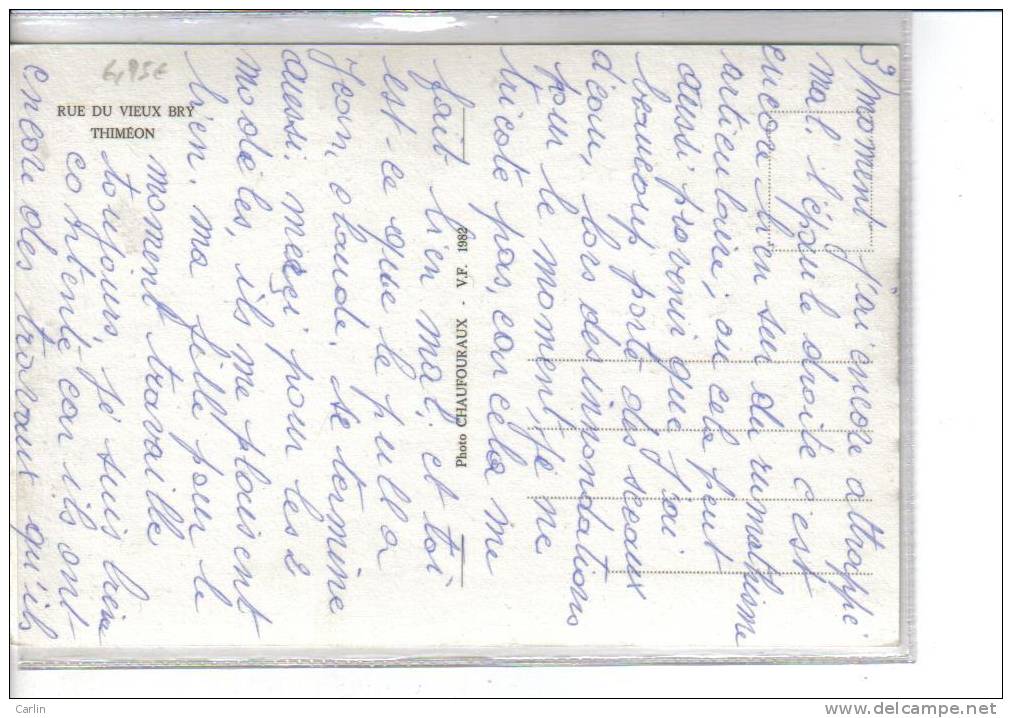 3/moment j'ai encore attrappé
mal l'épaule droite c'est
encore bien su du rumathisme
articuloire; ou cela peut
aussi provenir que j'ai
beaucoup porté des sceaux
d'eau, lors des innondations
pour le moment je ne
tricote pas, car cela me
fait bien mal. et toi
est-ce que le pull a
Jean, claude. se termine
aussi. merci pour les 2
modèles, ils me plaisent
bien. ma fille pour le
moment travaille
toujours, je suis bien
contente car ils ont
encore des travaux qu'ils
RUE DU VIEUX BRY
THIMÉON
6,95€
Photo CHAUFOURAUX - V.F. 1982
Carlin
www.delcampe.net